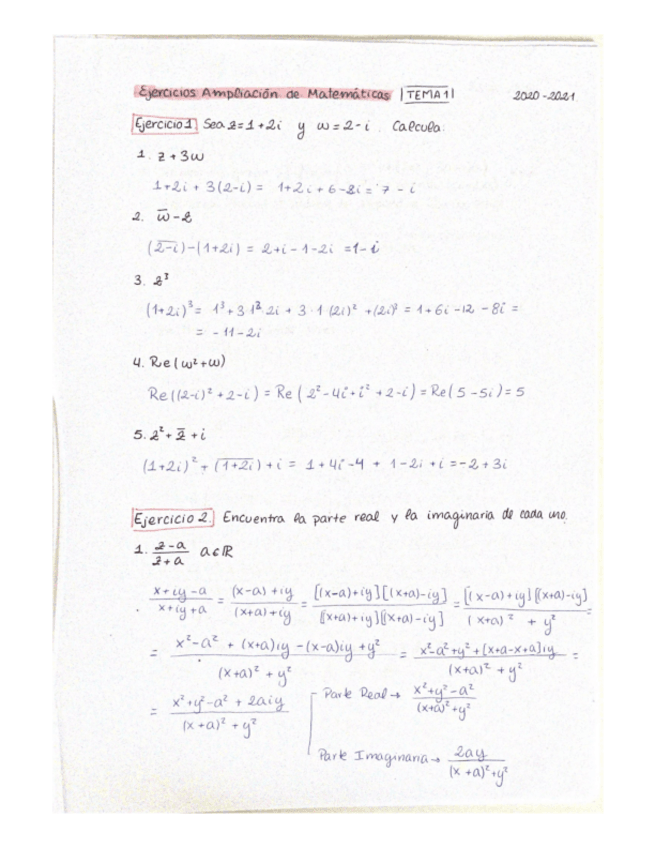 Ejercicios Ampliación de Matemáticas |TEMA 1| 2020-2021
Ejercicio 1 Sea z = 1+2i y w = 2-i. Calcula:
1. z + 3w
1+2i + 3(2-i) = 1+2i + 6 - 3i = 7 - i
2. w̄ - z
(2-i)‾ - (1+2i) = 2+i - 1 - 2i = 1 - i
3. z³
(1+2i)³ = 1³ + 3·1²·2i + 3·1·(2i)² + (2i)³ = 1 + 6i - 12 - 8i =
= - 11 - 2i
4. Re(w²+w)
Re((2-i)² + 2-i) = Re(2² - 4i + i² + 2 - i) = Re(5 - 5i) = 5
5. z² + z̄ + i
(1+2i)² + (1+2i)‾ + i = 1 + 4i - 4 + 1 - 2i + i = -2 + 3i
Ejercicio 2. Encuentra la parte real y la imaginaria de cada uno.
1. (z-a)/(z+a) a∈ℝ
(x+iy-a)/(x+iy+a) = ((x-a)+iy)/((x+a)+iy) = ([(x-a)+iy][(x+a)-iy])/([(x+a)+iy][(x+a)-iy]) = ([(x-a)+iy][(x+a)-iy])/((x+a)² + y²) =
= (x²-a² + (x+a)iy - (x-a)iy + y²)/((x+a)² + y²) = (x²-a²+y² + [x+a-x+a]iy)/((x+a)² + y²) =
= (x²+y²-a² + 2aiy)/((x+a)² + y²)
Parte Real → (x²+y²-a²)/((x+a)²+y²)
Parte Imaginaria → (2ay)/((x+a)²+y²)